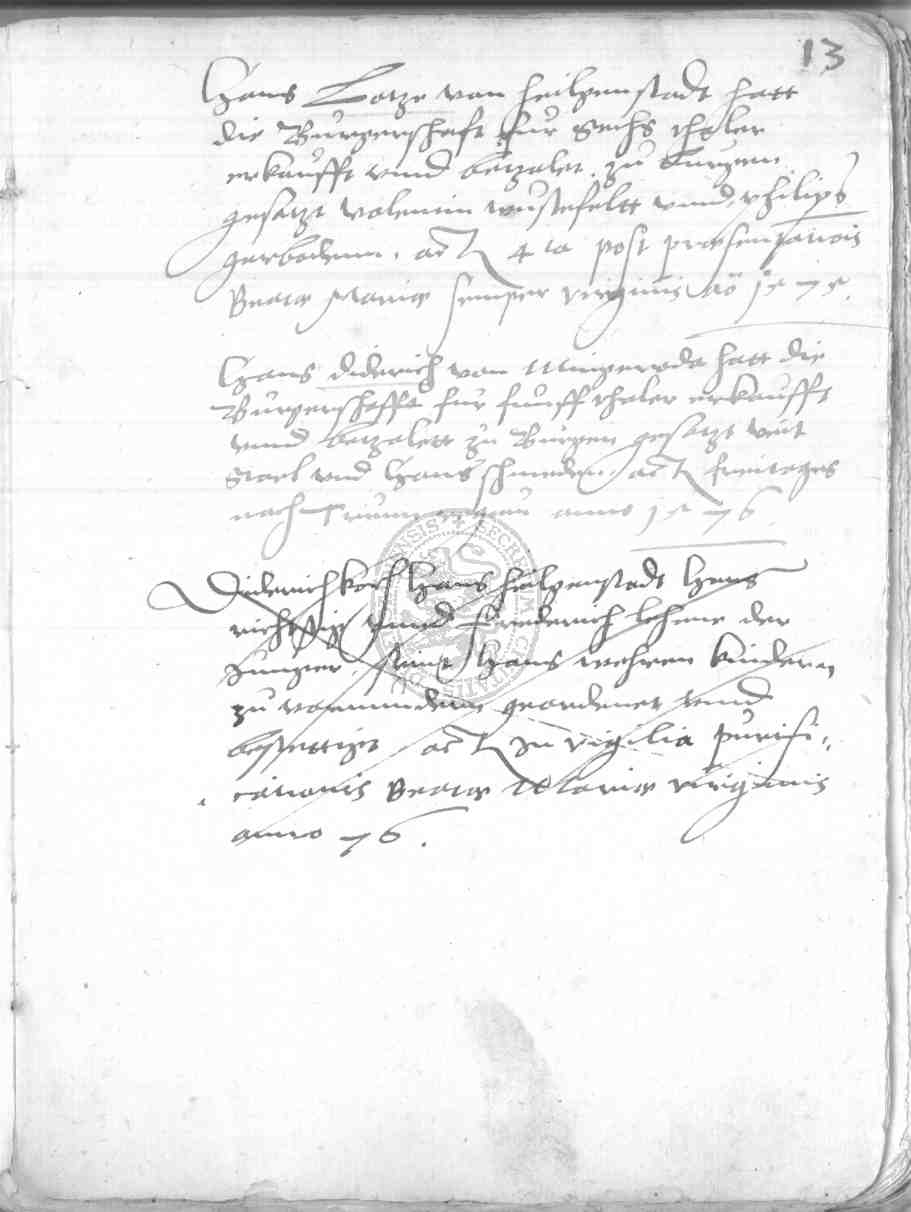 13
Hans Lotze von Heilgenstadt hatt
die Burgerschaft fur Sechs thaler
erkaufft vnnd betzalet. zu Burgenn
gesatzt valentin wustefeltt vnnd philips
gerbodenn. act 4ta post praesentationis
Beatae Mariae semper virginis Ao 1575.
Hans diderich von Wingerode hatt die
Burgerschafft fur funff thaler erkaufft
vnnd betzalett zu Burgen gesatzt veit
vnd Hans schmeden. act freitages
nach Trium regum anno 1576
Diderich koch Hans heilgenstadt Hans
vnnd Friderich lehene der
Junger. Hans wehren kindern
zu vormundenn geordenet vnnd
bestettiget. act In vigilia purifi-
cationis Beatae Mariae virginis
anno 76.